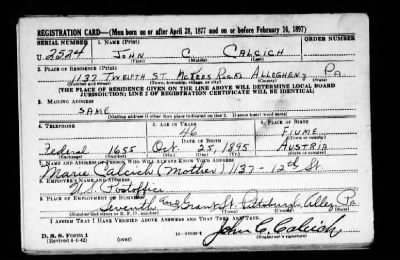 REGISTRATION CARD—(Men born on or after April 28, 1877 and on or before February 16, 1897)
SERIAL NUMBER 1. NAME (Print) ORDER NUMBER
U 2524 JOHN C CALCICH
(First) (Middle) (Last)
2. PLACE OF RESIDENCE (Print)
1137 TWELFTH ST. MCKEES ROCKS ALLEGHENY PA
(Number and street) (Town, township, village, or city) (County) (State)
[THE PLACE OF RESIDENCE GIVEN ON THE LINE ABOVE WILL DETERMINE LOCAL BOARD
JURISDICTION; LINE 2 OF REGISTRATION CERTIFICATE WILL BE IDENTICAL]
3. MAILING ADDRESS
SAME
(Mailing address if other than place indicated on line 2. If same insert word same)
4. TELEPHONE 5. AGE IN YEARS 6. PLACE OF BIRTH
46 FIUME
DATE OF BIRTH (Town or county)
Federal 1655 Oct. 25, 1895 AUSTRIA
(Exchange) (Number) (Mo.) (Day) (Yr.) (State or country)
7. NAME AND ADDRESS OF PERSON WHO WILL ALWAYS KNOW YOUR ADDRESS
Marie Calcich (Mother) 1137-12th St.
8. EMPLOYER'S NAME AND ADDRESS
U.S. Postoffice
9. PLACE OF EMPLOYMENT OR BUSINESS
Seventh and Grant St. Pittsburgh, Alleg. Pa
(Number and street or R. F. D. number) (Town) (County) (State)
I AFFIRM THAT I HAVE VERIFIED ABOVE ANSWERS AND THAT THEY ARE TRUE.
D. S. S. Form 1
(Revised 4-1-42) (over) John C. Calcich
(Registrant's signature)